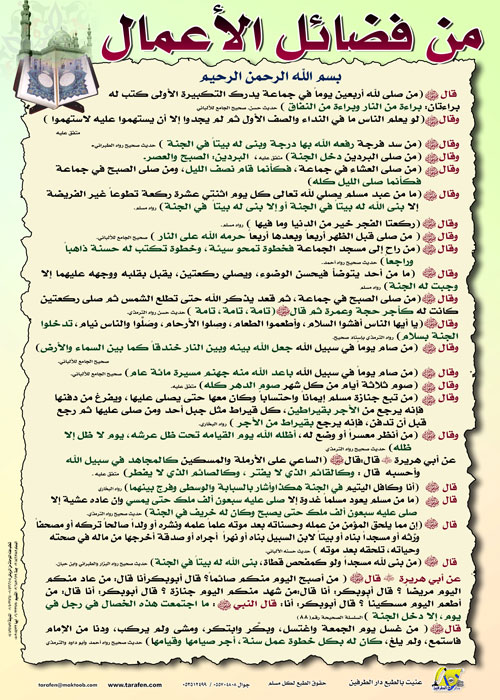 من فضائل الأعمال
بسم الله الرحمن الرحيم
قال ﷺ (من صلى لله أربعين يوماً في جماعة يدرك التكبيرة الأولى كتب له
براءتان: براءة من النار وبراءة من النفاق) حديث حسن صحيح الجامع للألباني
وقال ﷺ (لو يعلم الناس ما في النداء والصف الأول ثم لم يجدوا إلا أن يستهموا عليه لاستهموا)
متفق عليه
وقال ﷺ (من سد فرجة رفعه الله بها درجة وبنى له بيتاً في الجنة) حديث صحيح رواه الطبراني
وقال ﷺ (من صلى البردين دخل الجنة) متفق عليه، البردين: الصبح والعصر.
وقال ﷺ (من صلى العشاء في جماعة، فكأنما قام نصف الليل، ومن صلى الصبح في جماعة
فكأنما صلى الليل كله)
وقال ﷺ (ما من عبد مسلم يصلي لله تعالى كل يوم اثنتي عشرة ركعة تطوعاً غير الفريضة
إلا بنى الله له بيتاً في الجنة أو إلا بنى له بيتاً في الجنة) رواه مسلم.
وقال ﷺ (ركعتا الفجر خير من الدنيا وما فيها) رواه مسلم.
وقال ﷺ (من صلى قبل الظهر أربعاً وبعدها أربعاً حرمه الله على النار) صحيح الجامع للألباني
وقال ﷺ (من راح إلى مسجد الجماعة فخطوة تمحو سيئة، وخطوة تكتب له حسنة ذاهباً
وراجعاً) حديث صحيح رواه أحمد.
وقال ﷺ (ما من أحد يتوضأ فيحسن الوضوء، ويصلي ركعتين، يقبل بقلبه ووجهه عليهما إلا
وجبت له الجنة) رواه مسلم
وقال ﷺ (من صلى الصبح في جماعة، ثم قعد يذكر الله حتى تطلع الشمس ثم صلى ركعتين
كانت له كأجر حجة وعمرة ثم قال ﷺ (تامة، تامة، تامة) حديث حسن رواه الترمذي.
وقال ﷺ (يا أيها الناس أفشوا السلام، وأطعموا الطعام، وصلوا الأرحام، وصلوا والناس نيام، تدخلوا
الجنة بسلام) رواه الترمذي بإسناد صحيح.
وقال ﷺ (من صام يوماً في سبيل الله جعل الله بينه وبين النار خندقاً كما بين السماء والأرض)
صحيح الجامع للألباني.
وقال ﷺ (من صام يوماً في سبيل الله باعد الله منه جهنم مسيرة مائة عام) صحيح الجامع للألباني.
وقال ﷺ (صوم ثلاثة أيام من كل شهر صوم الدهر كله) متفق عليه.
وقال ﷺ (من تبع جنازة مسلم إيماناً واحتساباً وكان معها حتى يصلى عليها، ويفرغ من دفنها
فإنه يرجع من الأجر بقيراطين، كل قيراط مثل جبل أحد ومن صلى عليها ثم رجع
قبل أن تدفن، فإنه يرجع بقيراط من الأجر) رواه البخاري.
وقال ﷺ (من أنظر معسراً أو وضع له، أظله الله يوم القيامه تحت ظل عرشه، يوم لا ظل إلا
ظله) حديث صحيح رواه الترمذي.
عن أبي هريرة قال: قال ﷺ (الساعي على الأرملة والمسكين كالمجاهد في سبيل الله
وأحسبه قال: وكالقائم الذي لا يفتر، وكالصائم الذي لا يفطر) متفق عليه.
قال ﷺ (أنا وكافل اليتيم في الجنة هكذا وأشار بالسبابة والوسطى وفرج بينهما) رواه البخاري
قال ﷺ (ما من مسلم يعود مسلماً غدوة إلا صلى عليه سبعون ألف ملك حتى يمسي وإن عاده عشية إلا
صلى عليه سبعون ألف ملك حتى يصبح وكان له خريف في الجنة) حديث صحيح رواه الترمذي.
قال ﷺ (إن مما يلحق المؤمن من عمله وحسناته بعد موته علما علمه ونشره أو ولداً صالحاً تركه أو مصحفاً
ورثه أو مسجداً بناه أو بيتا لابن السبيل بناه أو نهراً أجراه أو صدقة أخرجها من ماله في صحته
وحياته، تلحقه بعد موته) حديث حسنه الألباني.
قال ﷺ (من بنى لله مسجداً ولو كمفحص قطاة، بنى الله له بيتاً في الجنة) حديث صحيح رواه البزار والطبراني وابن حبان.
عن أبي هريرة قال ﷺ (من أصبح اليوم منكم صائما؟ قال أبوبكر أنا، قال: من عاد منكم
اليوم مريضا؟ قال أبوبكر: أنا قال: من شهد منكم اليوم جنازة؟ قال أبوبكر: أنا، قال: من
أطعم اليوم مسكينا؟ قال أبوبكر: أنا، قال النبي ﷺ: ما اجتمعت هذه الخصال في رجل في
يوم، إلا دخل الجنة) السلسلة الصحيحة رقم (٨٨)
قال ﷺ (من غسل يوم الجمعة واغتسل، وبكّر وابتكر، ومشى ولم يركب، ودنا من الإمام
فاستمع، ولم يلغ، كان له بكل خطوة عمل سنة، أجر صيامها وقيامها) حديث صحيح رواه أحمد وأبو داود والترمذي
عنيت بالطبع دار الطرفين
حقوق الطبع لكل مسلم
www.tarafen.com
tarafen@maktoob.com